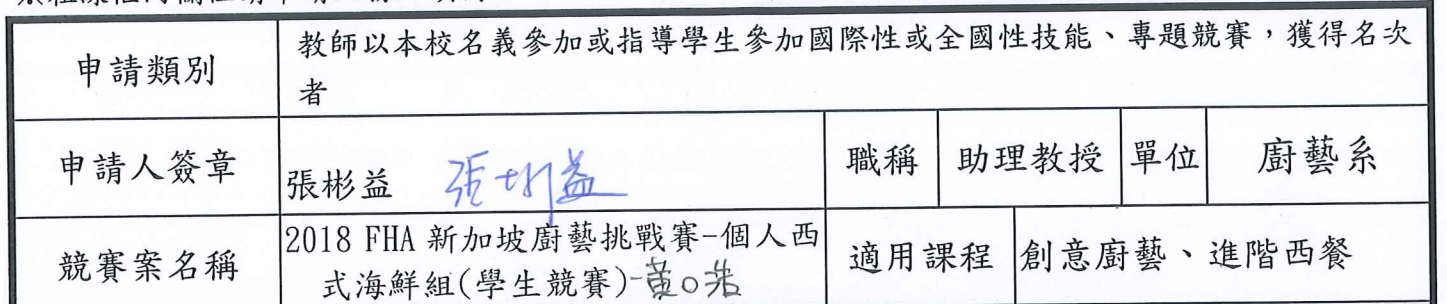 申請類別
教師以本校名義參加或指導學生參加國際性或全國性技能、專題競賽,獲得名次
者
申請人簽章
張彬益 張彬益
職稱
助理教授
單位
廚藝系
競賽案名稱
2018 FHA 新加坡廚藝挑戰賽-個人西
式海鮮組(學生競賽)-黃○浩
適用課程
創意廚藝、進階西餐